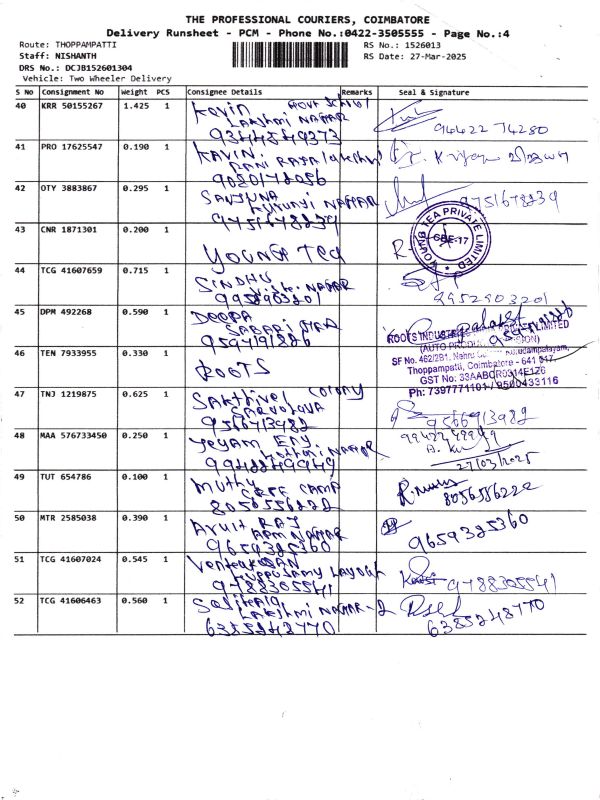 THE PROFESSIONAL COURIERS, COIMBATORE
Delivery Runsheet - PCM - Phone No.:0422-3505555 - Page No.:4
Route: THOPPAMPATTI
RS No.: 1526013
Staff: NISHANTH
RS Date: 27-Mar-2025
DRS No.: DCJB152601304
Vehicle: Two Wheeler Delivery
S No Consignment No Weight PCS Consignee Details Remarks Seal & Signature
40 KRR 50155267 1.425 1 Kavin Govt School
Lakshmi Nagar
9344549373
94422 74280
41 PRO 17625547 0.190 1 KAVIN
RANI
9080172056
42 OTY 3883867 0.295 1 SANJUNA
NAGAR
9751678239
9751678239
43 CNR 1871301 0.200 1 YOUNG TEA
YOUNG TEA PRIVATE LIMITED
CBE-17
44 TCG 41607659 0.715 1 SINDHU
NAGAR
9952903201
9952903201
45 DPM 492268 0.590 1 DEEPA
SABARI
9594191886
46 TEN 7933955 0.330 1 ROOTS
ROOTS INDUSTRIES LIMITED
(AUTO PRODUCTS DIVISION)
SF No. 462/2B1, Nehru
Thoppampatti, Coimbatore - 641 017.
GST No: 33AABCR0314E1Z6
Ph: 7397771101 / 9500433116
47 TNJ 1219875 0.625 1 Sakthivel colony
SARVOTAYA
9566913982
9566913982
48 MAA 576733450 0.250 1 Jeyam Eng.
Nagar
9942249949
27/03/2025
49 TUT 654786 0.100 1 Muthu
CRPF CAMP
8056586222
8056586222
50 MTR 2585038 0.390 1 Arult RAJ
RAM NAGAR
9659325360
9659325360
51 TCG 41607024 0.545 1 Venkatesan
KUPPUSAMY LAYOUT
9788305541
9788305541
52 TCG 41606463 0.560 1
LAKSHMI NAGAR-2
6385248770
6385248770